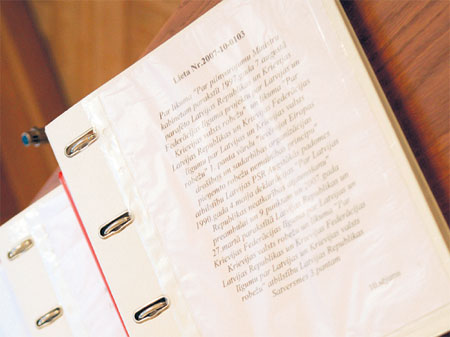 Lieta Nr.2007-10-0103
Par likumu "Par pilnvarojumu Ministru
kabinetam parakstīt 1997.gada 7.augustā
parafēto Latvijas Republikas un Krievijas
Federācijas līguma projektu par Latvijas un
Krievijas valsts robežu" un likuma "Par
Latvijas Republikas un Krievijas Federācijas
līgumu par Latvijas un Krievijas valsts
robežu" 1. panta vārdu "ievērojot Eiropas
drošības un sadarbības organizācijas
pieņemto robežu nemainības principu"
atbilstību Latvijas PSR Augstākās padomes
1990.gada 4.maija deklarācijas "Par Latvijas
Republikas neatkarības atjaunošanu"
preambulai un 9.punktam un 2007.gada
27.martā parakstītā Latvijas Republikas un
Krievijas Federācijas līguma par Latvijas un
Krievijas valsts robežu un likuma "Par
Latvijas Republikas un Krievijas Federācijas
līgumu par Latvijas un Krievijas valsts
robežu" atbilstību Latvijas Republikas
Satversmes 3.pantam
10.sējums